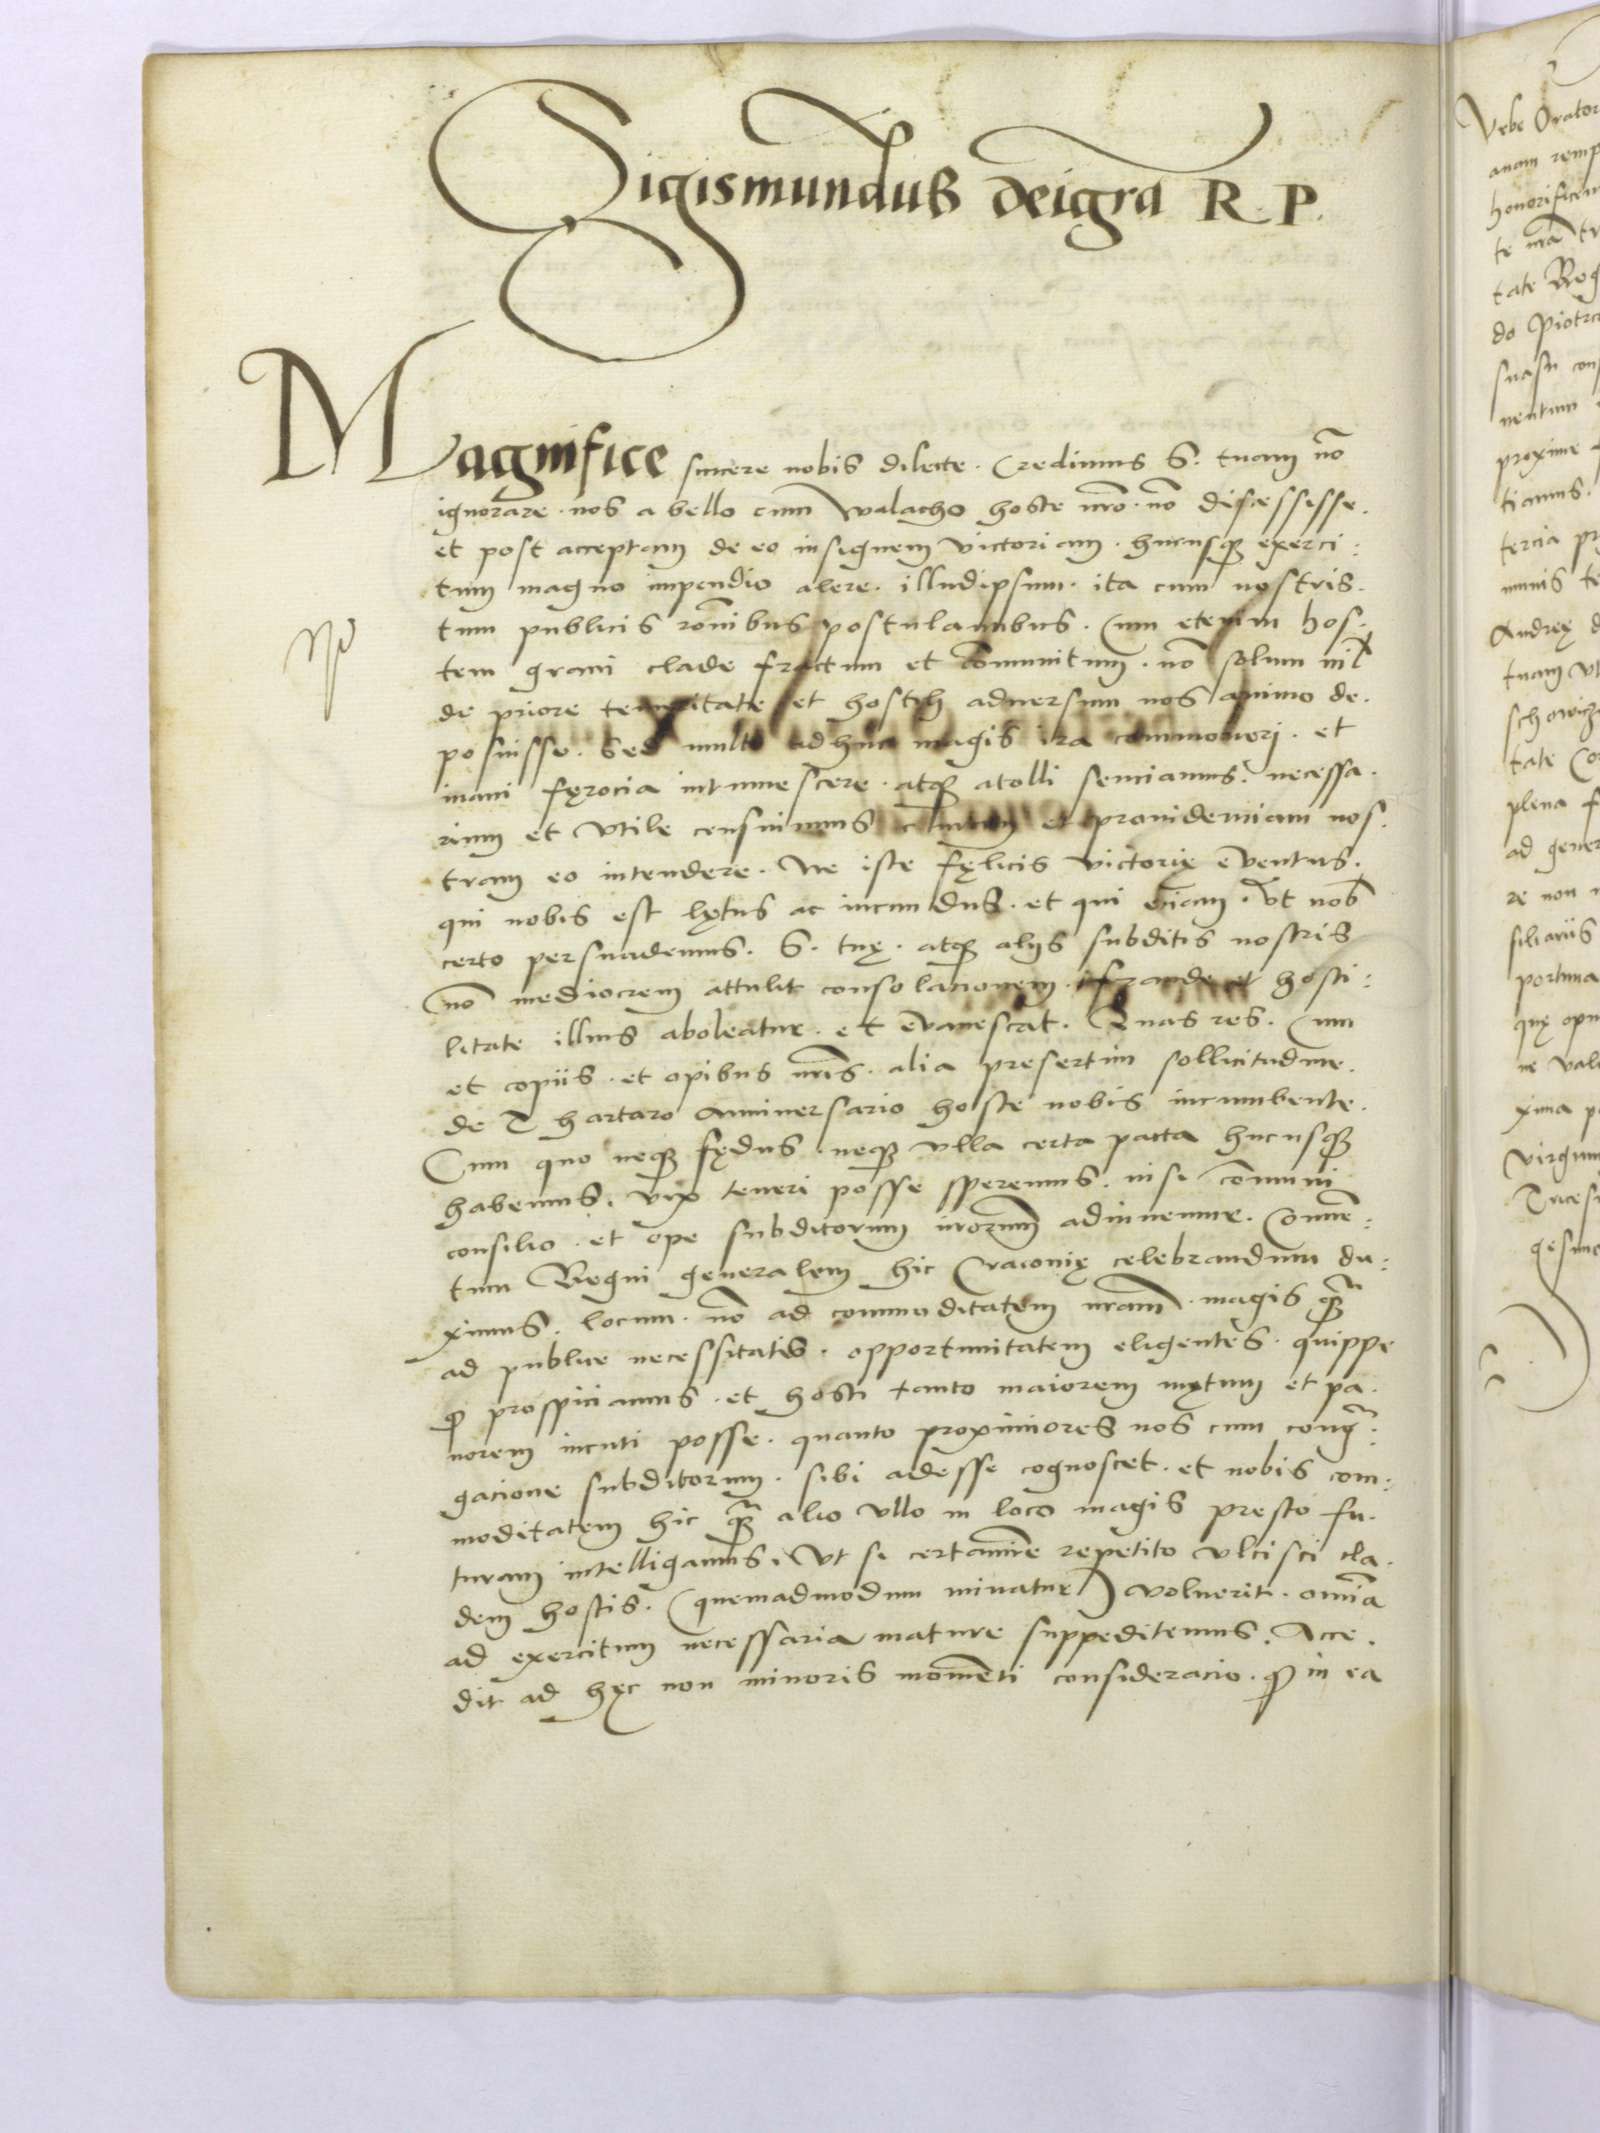 Sigismundus deigra R. P.
Magnifice sincere nobis dilecte. Credimus S. tuam nō
ignorare. nos a bello cum walacho hoste nrō. nō discessisse.
et post acceptam de eo insignem victoriam. hucusqȝ exerci:
tum magno impendio alere. illudipsum. ita cum nostris.
tum publicis rōnibus postulantibus. Cum etenim hos.
tem graui clade fractum et cōmunitum. nō solum nil
de priore temeritate et hostili aduersum nos animo de.
posuisse. Sed multo adhuc magis ira commoueri. et
inani fęrocia intumescere. atqȝ atolli senciamus. necessa.
rium et vtile censuimus et prouidenciam nos.
tram eo intendere. Ne iste fęlicis victorię euentus.
qui nobis est lętus ac iucundus. et qui eciam. vt nob̄
certo persuademus. S. tuę. atqȝ alijs subditis nostris
nō mediocrem attulit consolacionem. fraude et hosti:
litate illius aboleatur. et euanescat. Quas res. Cum
et copiis. et opibus nrīs. alia presertim sollicitudine.
de Thartaro anniuersario hoste nobis incumbente.
Cum quo neqȝ fędus neqȝ vlla certa pacta hucusqȝ
habemus. vix teneri posse speremus. nisi cōmuni
consilio. et ope subditorum nrorum adiuuemur. Conuē:
tum Regni generalem hic Cracouię celebrandum du:
ximus. locum. nō ad commoditatem nram. magis qȝ̄
ad publice necessitatis. opportunitatem eligentes. quippe
qȝ prospiciamus. et hosti tanto maiorem mętum et pa.
uorem incuti posse. quanto proximiores nos cum congr̄:
gacione subditorum. sibi adesse cognoscet. et nobis com:
moditatem hic qȝ̄ alio vllo in loco magis presto fu.
turam intelligamus. Vt si certamine repetito vlcisci cla.
dem hostis. (quemadmodum minatur) voluerit. omīa
ad exercitum necessaria mature suppeditemus. Acce.
dit ad hęc non minoris momenti consideracio. qȝ in ea
Vrbe Orator
anam remp
honorifice
te nrā tr
tate Reg
do Piotrco
suasu con
uentum
proxime
tiamus.
tercia pr
Andreę d
tuam vt
schowicz
tate Co
plena f
ad gener
re non
siliariis
portuna
quę opu
ne vale
xima p
virginu
Trices
gesimo